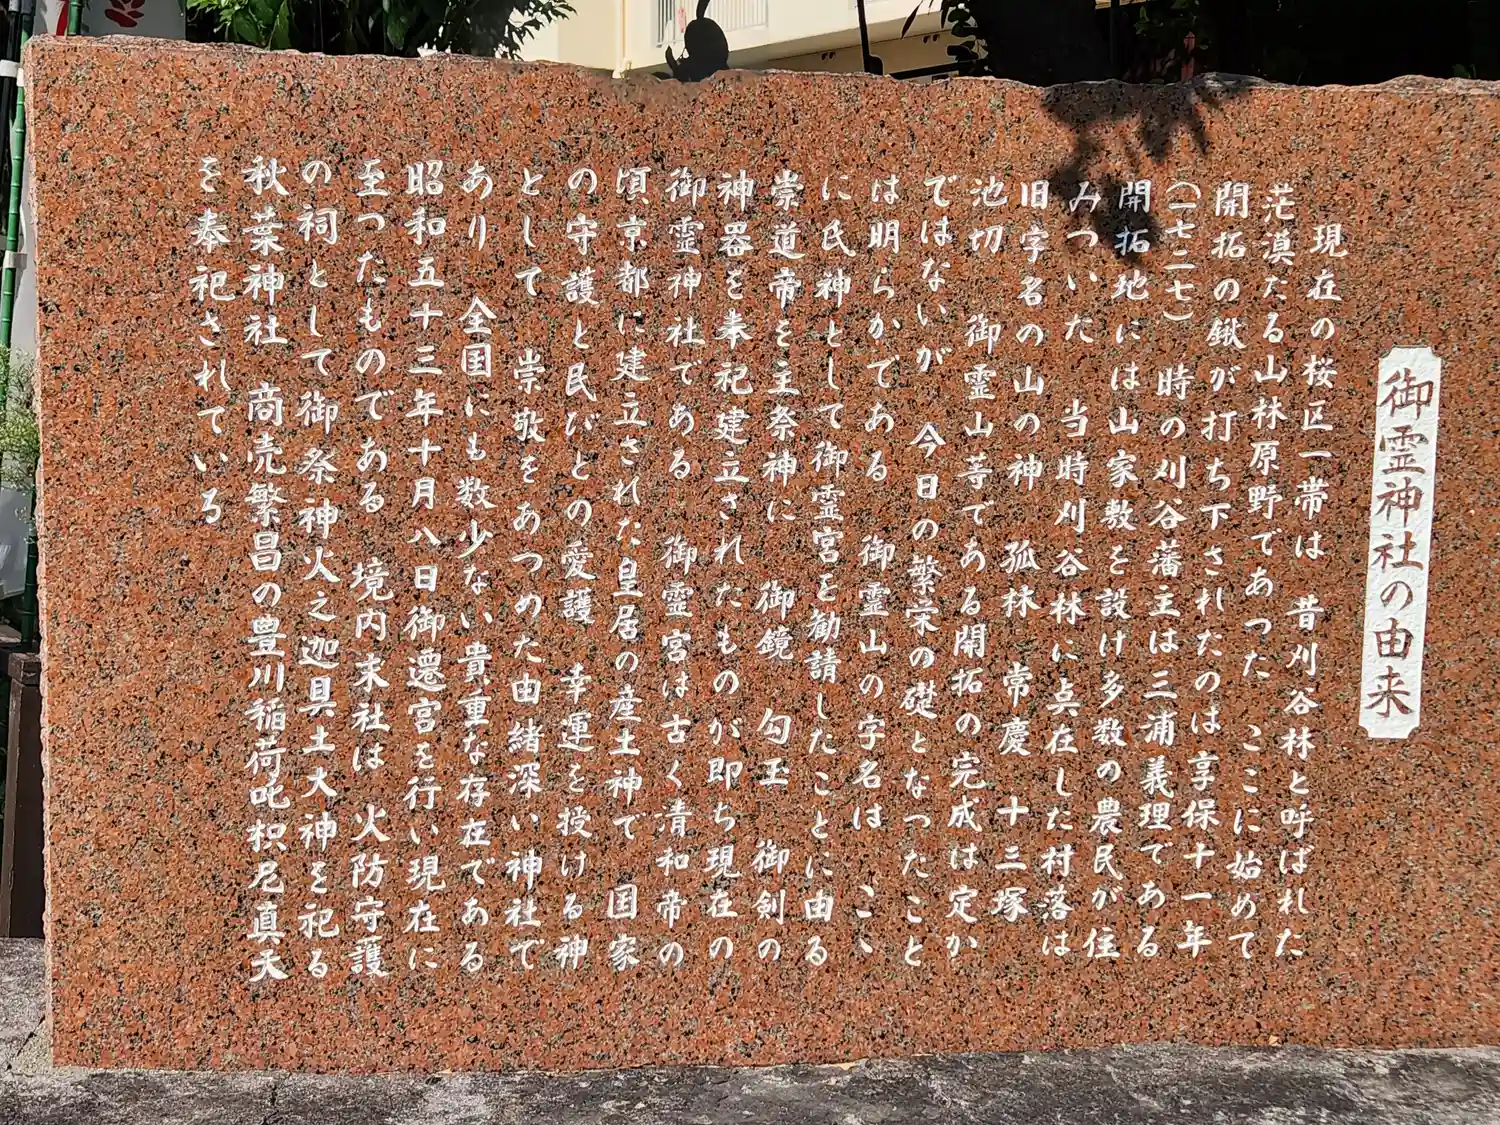 御霊神社の由来
現在の桜区一帯は 昔刈谷林と呼ばれた
茫漠たる山林原野であった ここに始めて
開拓の鍬が打ち下されたのは享保十一年
(一七二七) 時の刈谷藩主は三浦義理である
開拓地には山家敷を設け多数の農民が住
みついた 当時刈谷林に点在した村落は
旧字名の山の神 孤林 常慶 十三塚
池切 御霊山等である開拓の完成は定か
ではないが 今日の繁栄の礎となったこと
は明らかである 御霊山の字名は こゝ
に氏神として御霊宮を勧請したことに由る
崇道帝を主祭神に 御鏡 勾玉 御剣の
神器を奉祀建立されたものが即ち現在の
御霊神社である 御霊宮は古く清和帝の
頃京都に建立された皇居の産土神で 国家
の守護と民びとの愛護 幸運を授ける神
として 崇敬をあつめた由緒深い神社で
あり 全国にも数少ない貴重な存在である
昭和五十三年十月八日御遷宮を行い現在に
至ったものである 境内末社は 火防守護
の祠として御祭神火之迦具土大神を祀る
秋葉神社 商売繁昌の豊川稲荷吒枳尼真天
を奉祀されている